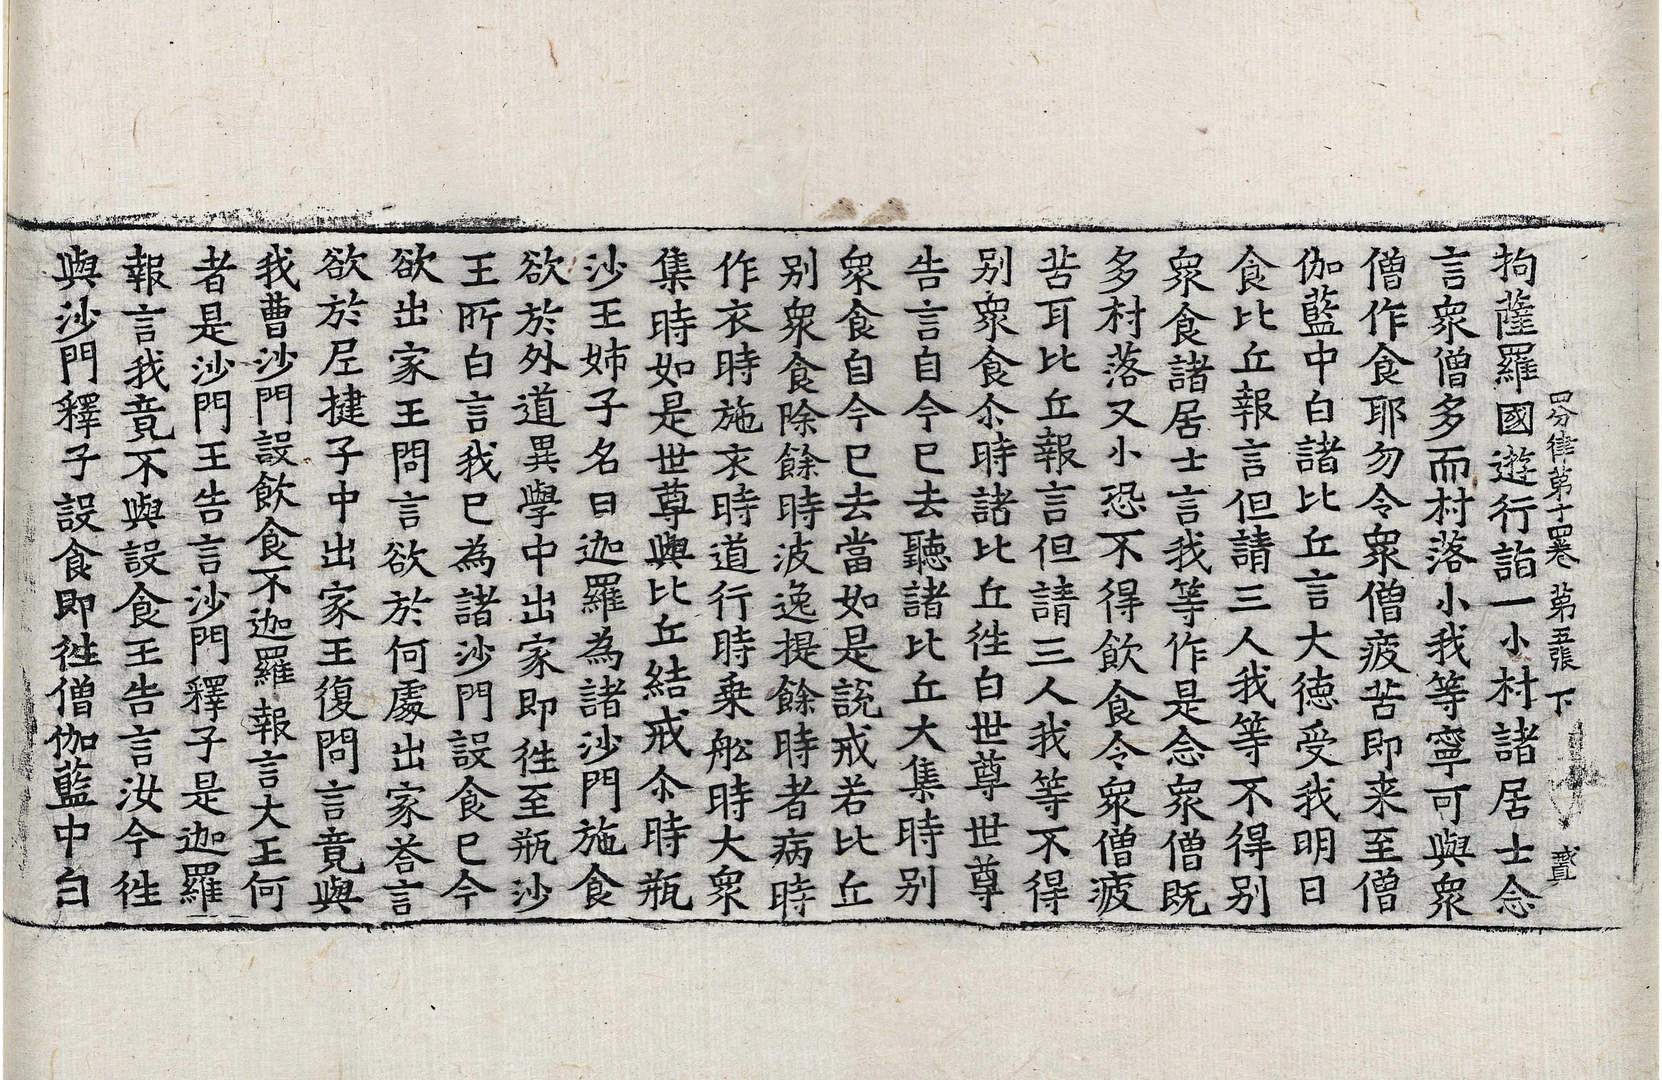 四分律第十四卷 第五張 下
拘薩羅國遊行詣一小村諸居士念
言衆僧多而村落小我等寧可與衆
僧作食耶勿令衆僧疲苦即来至僧
伽藍中白諸比丘言大德受我明日
食比丘報言但請三人我等不得別
衆食諸居士言我等作是念衆僧既
多村落又小恐不得飲食令衆僧疲
苦耳比丘報言但請三人我等不得
別衆食尒時諸比丘徃白世尊世尊
告言自今已去聽諸比丘大集時別
衆食自今已去當如是說戒若比丘
別衆食除餘時波逸提餘時者病時
作衣時施衣時道行時乗舩時大衆
集時如是世尊與比丘結戒尒時瓶
沙王姉子名曰迦羅為諸沙門施食
欲於外道異學中出家即徃至瓶沙
王所白言我已為諸沙門設食已今
欲出家王問言欲於何處出家荅言
欲於尼揵子中出家王復問言竟與
我曹沙門設飲食不迦羅報言大王何
者是沙門王告言沙門釋子是迦羅
報言我竟不與設食王告言汝今徃
與沙門釋子設食即徃僧伽藍中白